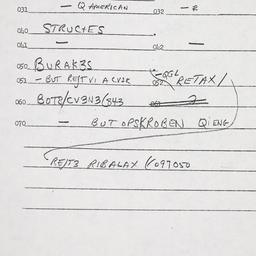 031 — Q AMERICAN 032 — R
040 STRUCTES .
041 — 042 —
050 BURAK3S -QGL
051 - BUT RE/T VI A CV2R 052 RETAX/
060 BOT8/CV3N3/843 061
070 — BUT OPSKROBEN Q: ENG
RE/T3 RIBALAX (/097050